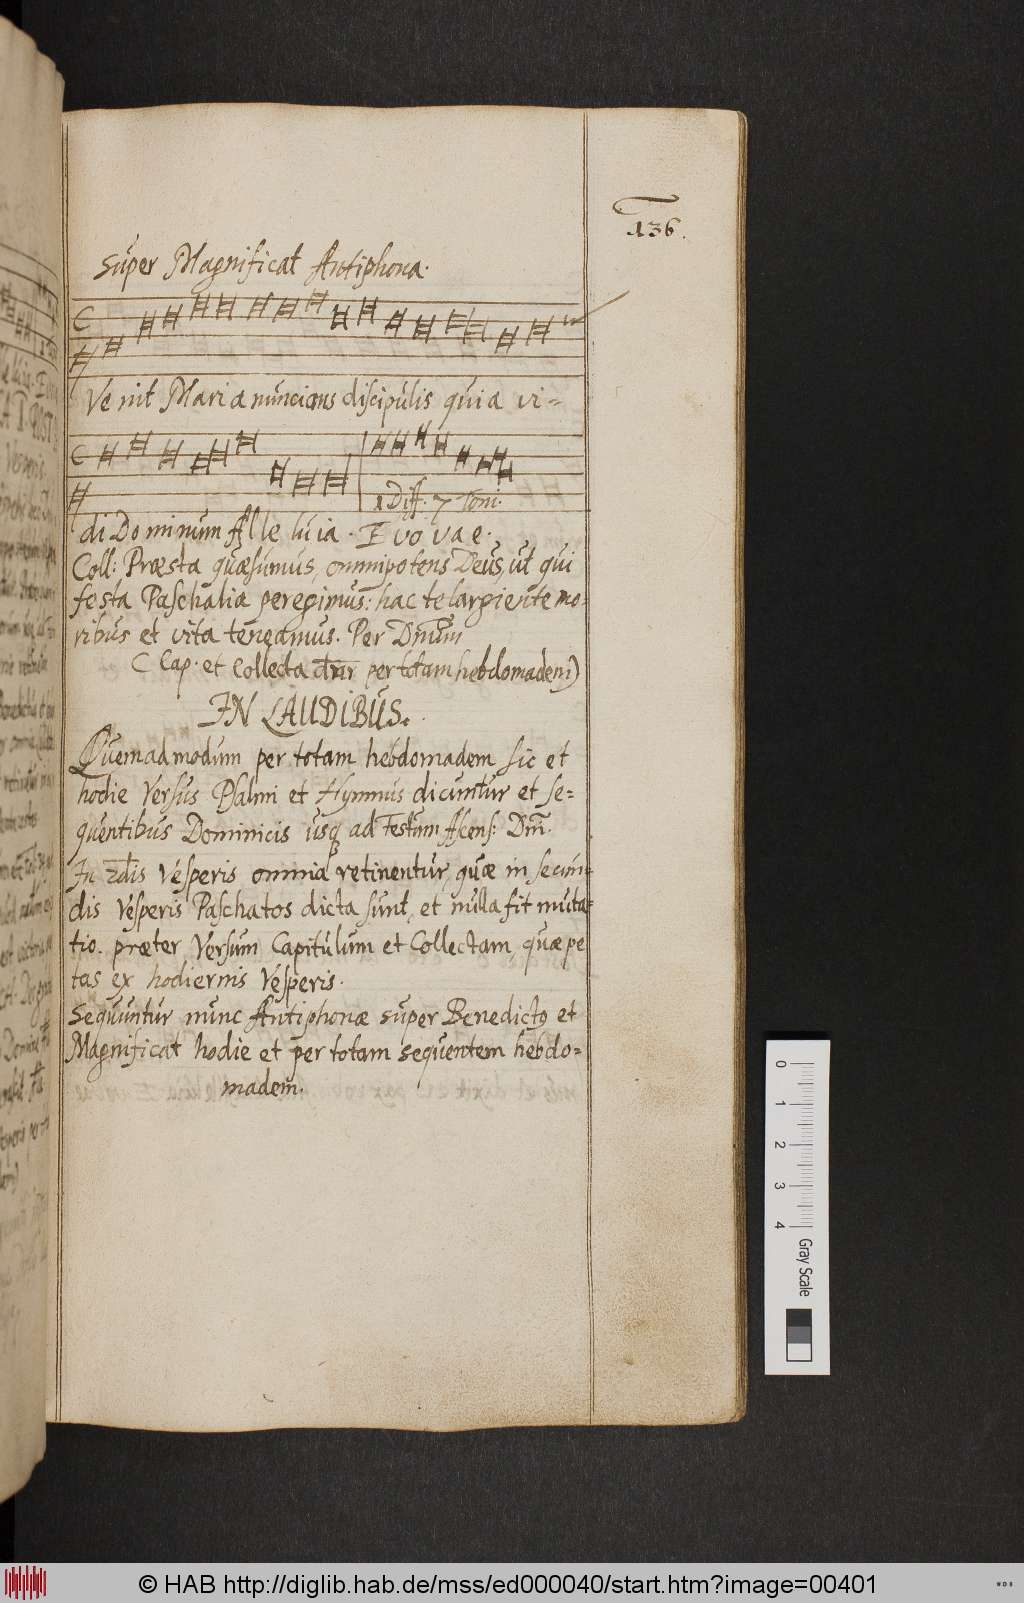 136.
Super Magnificat Antiphona.
Venit Maria nuncians discipulis quia vi=
1 Diff. 7 Toni.
di Dominum Alleluia. Evovae.
Coll: Præsta quæsumus, omnipotens Deus, ut qui
festa Paschalia peregimus: hac te largiente mo=
ribus et vita teneamus. Per Dñum
( Cap. et Collecta dr̃ per totam hebdomadem)
IN LAUDIBUS.
Quemadmodum per totam hebdomadem sic et
hodie Versus Psalmi et Hymnus dicuntur et se=
quentibus Dominicis usq ad Festum Ascens: Dm̃.
In 2dis Vesperis omnia retinentur, quæ in secun=
dis Vesperis Paschatos dicta sunt, et nulla fit muta=
tio. præter Versum Capitulum et Collectam, quæ pe
tas ex hodiernis Vesperis.
Sequuntur nunc Antiphonæ super Benedictq et
Magnificat hodie et per totam sequentem hebdo=
madem.
0 1 2 3 4 Gray Scale
© HAB http://diglib.hab.de/mss/ed000040/start.htm?image=00401